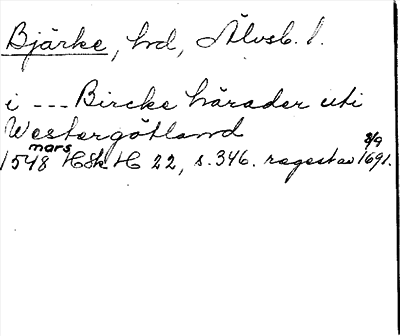 Bjärke, hd, Älvsb. l.
i --- Bircke härader uti
Westergötland
1548 mars HSH H 22, s. 346. regest av 8/9 1691.